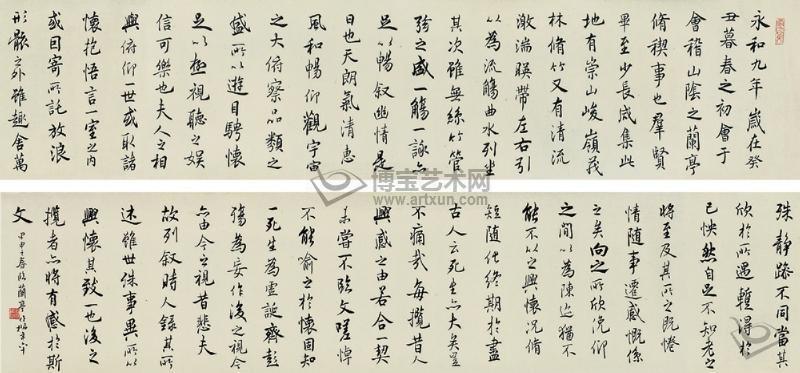 永和九年歲在癸
丑暮春之初會于
會稽山陰之蘭亭
脩禊事也羣賢
畢至少長咸集此
地有崇山峻嶺茂
林脩竹又有清流
激湍暎帶左右引
以為流觴曲水列坐
其次雖無絲竹管
弦之盛一觴一詠亦
足以暢叙幽情是
日也天朗氣清惠
風和暢仰觀宇宙
之大俯察品類之
盛所以遊目騁懷
足以極視聽之娛
信可樂也夫人之相
與俯仰一世或取諸
懷抱悟言一室之內
或因寄所託放浪
形骸之外雖趣舍萬
殊靜躁不同當其
欣於所遇暫得於
己怏然自足不知老之
將至及其所之既惓
情隨事遷感慨係
之矣向之所欣俛仰
之間以為陳迹猶不
能不以之興懷況脩
短隨化終期於盡
古人云死生亦大矣豈
不痛哉每攬昔人
興感之由若合一契
未嘗不臨文嗟悼
不能喻之於懷固知
一死生為虛誕齊彭
殤為妄作後之視今
亦由今之視昔悲夫
故列叙時人錄其所
述雖世殊事異所以
興懷其致一也後之
攬者亦將有感於斯
文
甲申年春臨蘭亭
博宝艺术网
www.artxun.com